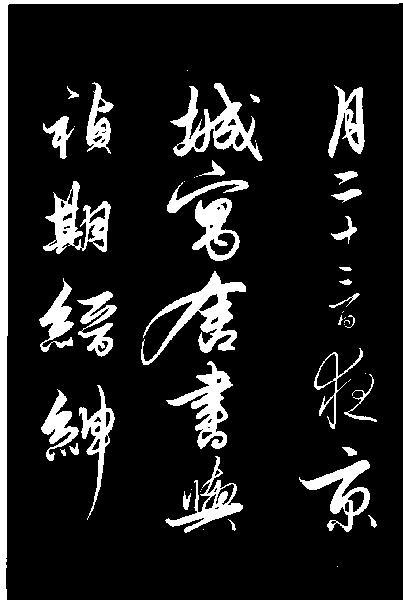 月二十三日夜京
城寓舍書與
禎期縉紳